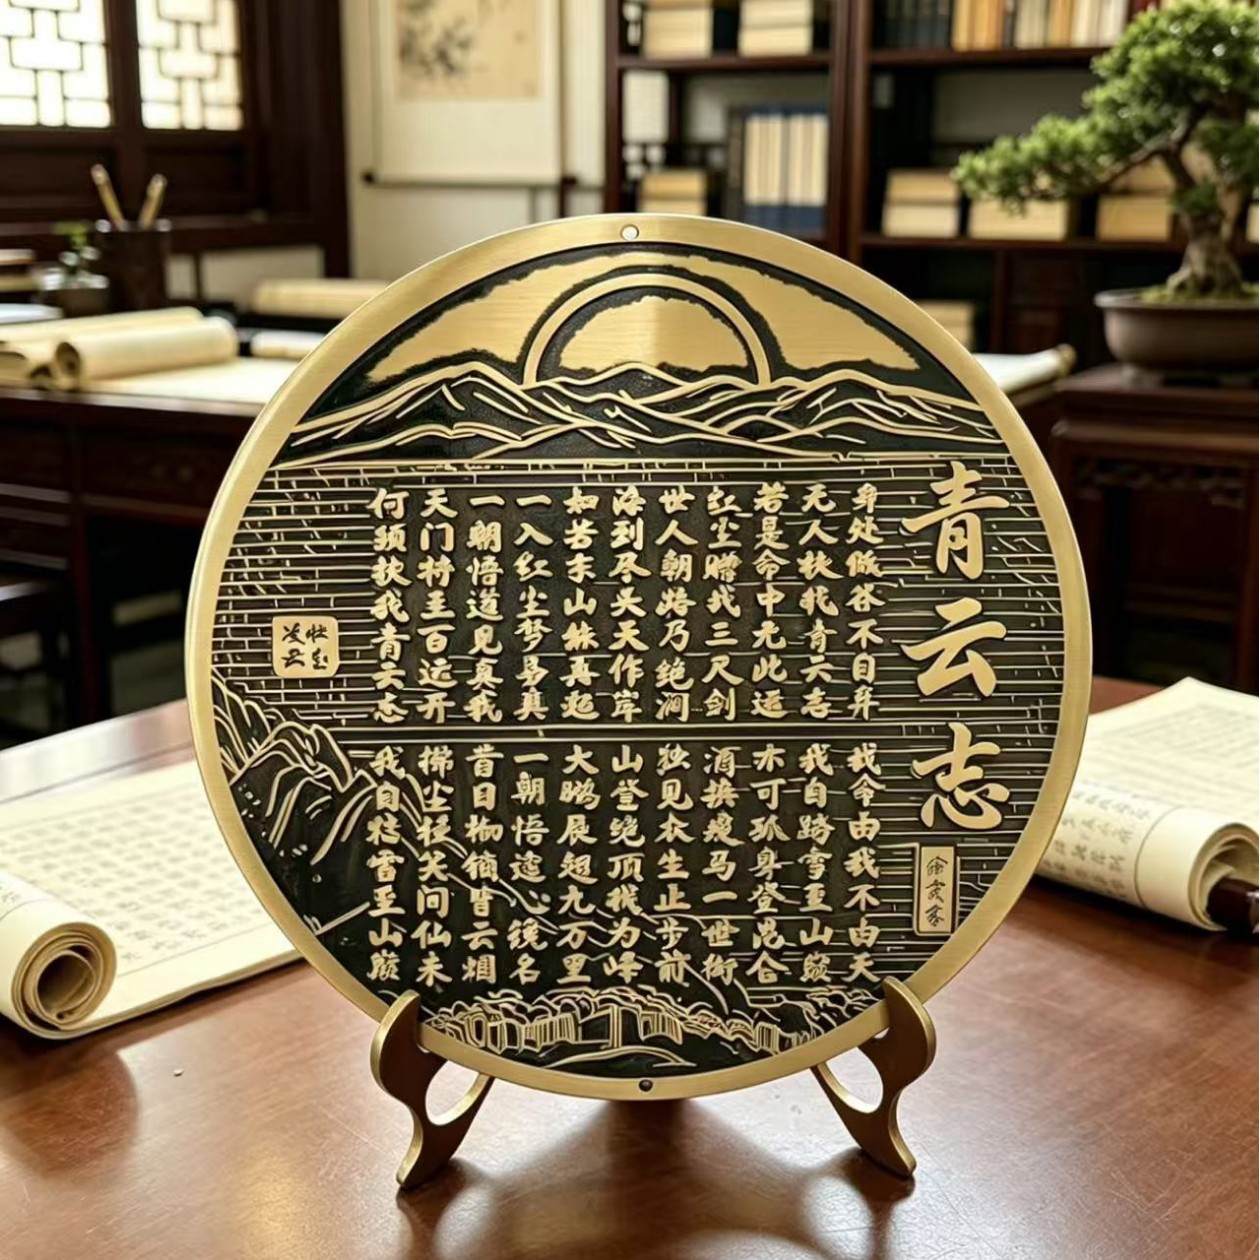 青云志
身处低谷不自弃
我命由我不由天
无人扶我青云志
我自踏雪至山巅
若是命中无此运
亦可孤身登昆仑
红尘赠我三尺剑
酒换瘦马一世街
世人朝路乃绝涧
独见众生止步前
海到尽头天作岸
山登绝顶我为峰
如若东山能再起
大鹏展翅九万里
一入红尘梦易真
一朝悟透心镜名
一朝悟道见真我
昔日枷锁皆云烟
天门将至百运开
拂尘轻笑问仙来
何须扶我青云志
我自踏雪至山巅
壮志
凌云